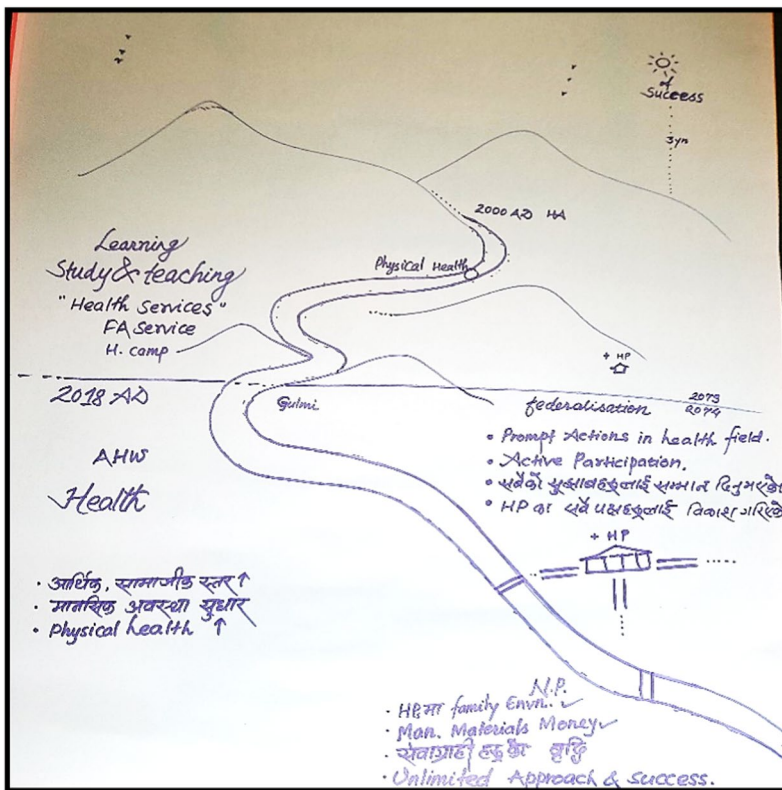 of
Success
3yn
2000 AD HA
Physical Health
Learning
Study & teaching
"Health Services"
FA Service
H. camp
+ HP
2018 AD
Gulmi
federalisation
2073
2074
AHW
Health
• Prompt Actions in health field.
• Active Participation.
• सबैको सुझाबहरुलाई सम्मान दिनुभएको
• HP का सबै पक्षहरुलाई विकाश गरिएको
+ HP
• आर्थिक, सामाजीक स्तर ↑
• मानसिक अवस्था सुधार
• Physical health ↑
N.P.
• HP मा family Envn. ✓
• Man. Materials Money ✓
• सेवाग्राही हरुको बृद्धि
• Unlimited Approach & success.